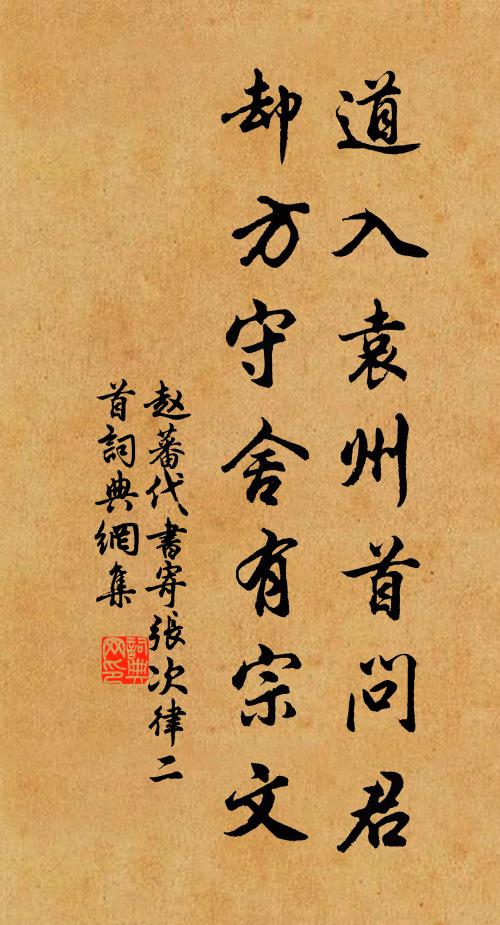 道入袁州首问君
却方守舍有宗文
赵蕃代书寄张次律二
首词典网集
词典
网印